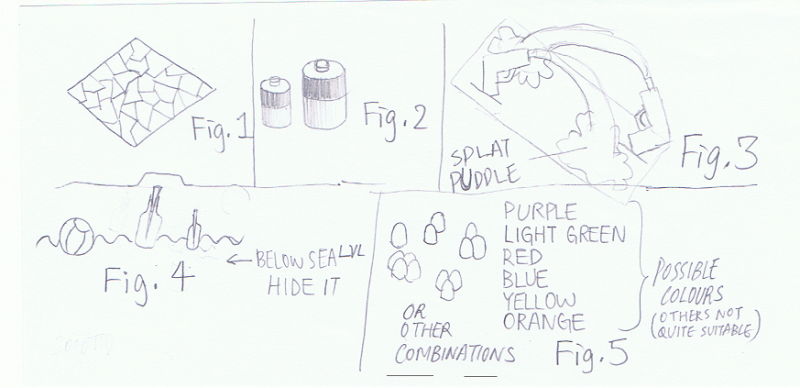 Fig. 1
Fig. 2
SPLAT
PUDDLE
Fig. 3
← BELOW SEA LVL
HIDE IT
Fig. 4
OR
OTHER
COMBINATIONS
PURPLE
LIGHT GREEN
RED
BLUE
YELLOW
ORANGE
POSSIBLE
COLOURS
(OTHERS NOT
QUITE SUITABLE)
Fig. 5